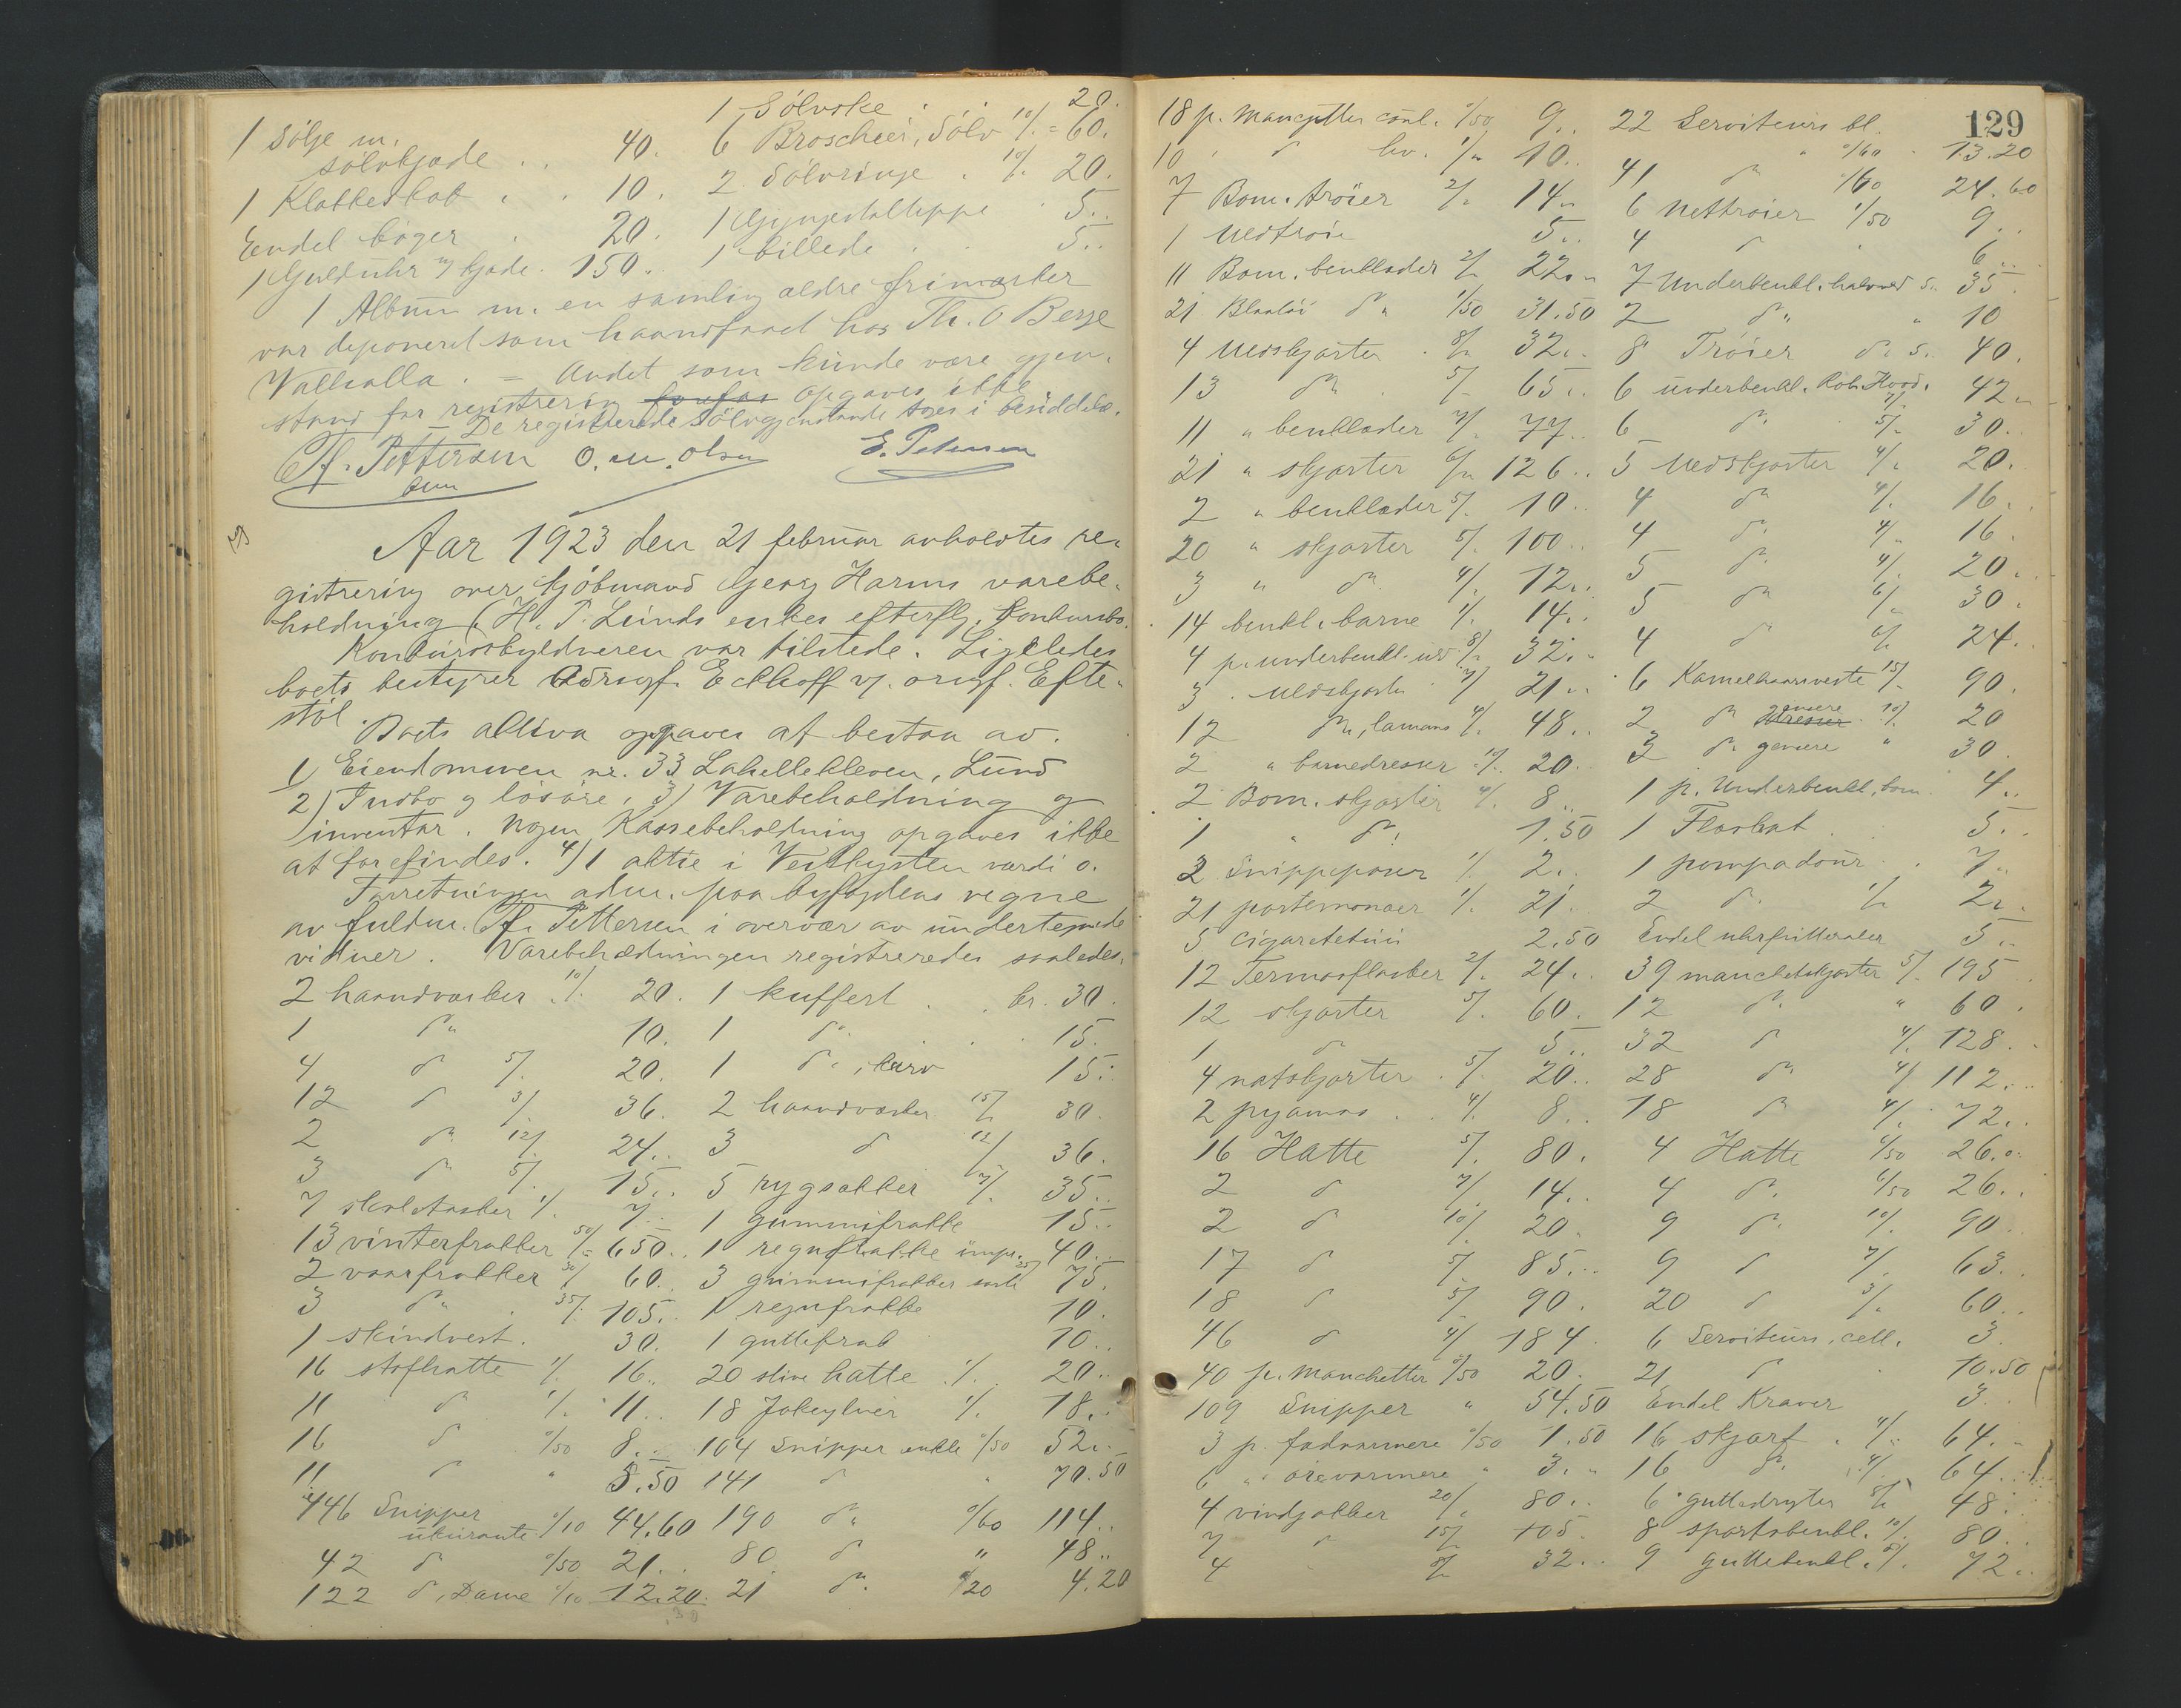 1 Sølje m.
sølvkjæde . . 40.
1 Klokkeskab . . 10.
Endel bøger . 20.
1 Gulduhr m/ kjæde. 150..
1 Sølvske . . 20.
6 Broscher, Sølv 10/. = 60.
2 Sølvringe . 10/. 20.
1 Gyngestolteppe . 5..
1 billede . . 5..
1 Album m. en samling ældre frimærker
var deponeret som haandfaaet hos Th. O Berge
Valhalla. = Andet som kunde være gjen-
stand for registrering opgaves ikke.
— De registrerede Sølvgjenstande toges i besiddelse.
Pettersen O. M. Olsen E. Petersen
Aar 1923 den 21 februar avholdtes re-
gistrering over kjøbmand Georg Harms varebe-
holdning (H. P. Lunds enkes efterflg. konkursbo.
Konkursskyldneren var tilstede. Ligeledes
boets bestyrer Adrsgf. Eckhoff v/ orsgf. Efte-
støl.
Boets aktiva opgaves at bestaa av.
1) Eiendommen nr. 33 Lahellekleven, Lund
2) Indbo og løsøre, 3) Varebeholdning og
inventar. Nogen Kassebeholdning opgaves ikke
at forefindes. 4) 1 aktie i Vestkysten værdi 0.
Forretningen adm. paa byfogdens vegne
av fuldm. Pettersen i overvær av undertegnede
vidner. Varebeholdningen registreredes saaledes.
2 haandvæsker 10/. 20. 1 kuffert . . kr. 30.
1 do 10. 1 do . . 15.
4 do 5/. 20. 1 do, kurv 15.
12 do 3/. 36. 2 haandvæsker 15/. 30.
2 do 12/. 24.. 3 do 12/. 36.
3 do 5/. 15.. 5 rygsækker 7/. 35..
7 skoletasker 1/. 7.. 1 gummifrakke 15..
13 vinterfrakker 50/. = 650.. 1 regnfrakke impr. 40..
2 vaarfrakker 30/. 60. 3 gummifrakker 25/. 75.
3 do 35/. 105.. 1 regnfrakke 10.
1 skindvest. 30. 1 guttefrak 10..
16 stofhatte 1/. 16.. 20 stive hatte 1/. 20..
11 do 1/. 11.. 18 Jokeyluer 1/. 18..
16 do 0/50 8.. 104 Snipper enkle 0/50 52..
11 do " 5.50 141 do " 70.50
446 Snipper
ukurante 0/10 44.60 190 do 0/60 114..
42 do 0/50 21.. 80 do " 48..
122 do, Dame 0/10 12.20. 21 do 0/20 4.20
129
18 p. Manchetter coul. 0/50 9.. 22 Serviteurs bl.
0/60 13.20
10 do hv. 1/. 10.. 41 do 0/60 24.60
7 Bom. trøier 2/. 14.. 6 nettrøier 1/50 9..
1 Uldtrøie 5.. 4 do 6..
11 Bom. benklæder 2/. 22.. 7 Underbenkl. halvuld 5.. 35.
21 Blaatøi do 1/50 31.50 2 do " 10
4 Uldskjorter 8/. 32.. 8 Trøier do 5.. 40.
13 do 5/. 65.. 6 underbenkl. Rob. Hood. 7/. 42..
11 " benklæder 7/. 77.. 6 do 5/. 30..
21 " skjorter 6/. 126.. 5 Uldskjorter 4/. 20.
2 " benklæder 5/. 10.. 4 do 4/. 16..
20 " skjorter 5/. 100.. 4 do 4/. 16.
3 " do 4/. 12.. 5 do 4/. 20..
14 benkl. barne 1/. 14.. 5 do 6/. 30.
4 p. underbenkl. uld 8/. 32.. 4 do 6/. 24..
3 uldskjorter 7/. 21.. 6 Kamelhaarsveste 15/. 90.
12 do, lamans 4/. 48.. 2 do gensere 10/. 20
2 " barnedresser 10/. 20. 3 do gensere " 30.
2 Bom. skjorter 4/. 8.. 1 p. Underbenkl. bom. 4..
1 " do 1.50 1 Floshat . . 5..
2 Snippeposer 1/. 2.. 1 pompadour . . 7..
21 portemonæer 1/. 21. 2 do 1/. 2..
5 cigaretetuii 2.50 Endel uhrfutteraler 5..
12 Termosflasker 2/. 24.. 39 manchetskjorter 5/. 195
12 skjorter 5/. 60. 12 do " 60.
1 do 5.. 32 do 4/. 128..
4 natskjorter 5/. 20.. 28 do 4/ 112..
2 pyamas . . 4/. 8.. 18 do 4/. 72..
16 Hatte 5/. 80. 4 Hatte 6/50 26..
2 do 7/ 14.. 4 do 6/50 26..
2 do 10/. 20. 9 do 10/. 90.
17 do 5/ 85.. 9 do 7/. 63..
18 do 5/ 90. 20 do 3/. 60..
46 do 4/ 184. 6 Serviteurs. cell. 3.
40 p. Manchetter 0/50 20. 21 do 10.50
109 Snipper " 54.50 Endel Kraver 3.
3 p. fodvarmere 0/50 1.50 16 skjærf . 4/. 64..
6 " ørevarmere " 3.. 16 do 4/. 64..
4 vindjakker 20/. 80.. 6 guttedrgter 8/. 48.
7 do 15/ 105. 8 sportsbenkl. 10/. 80..
4 8/. 32.. 9 guttebenkl. 8/. 72..